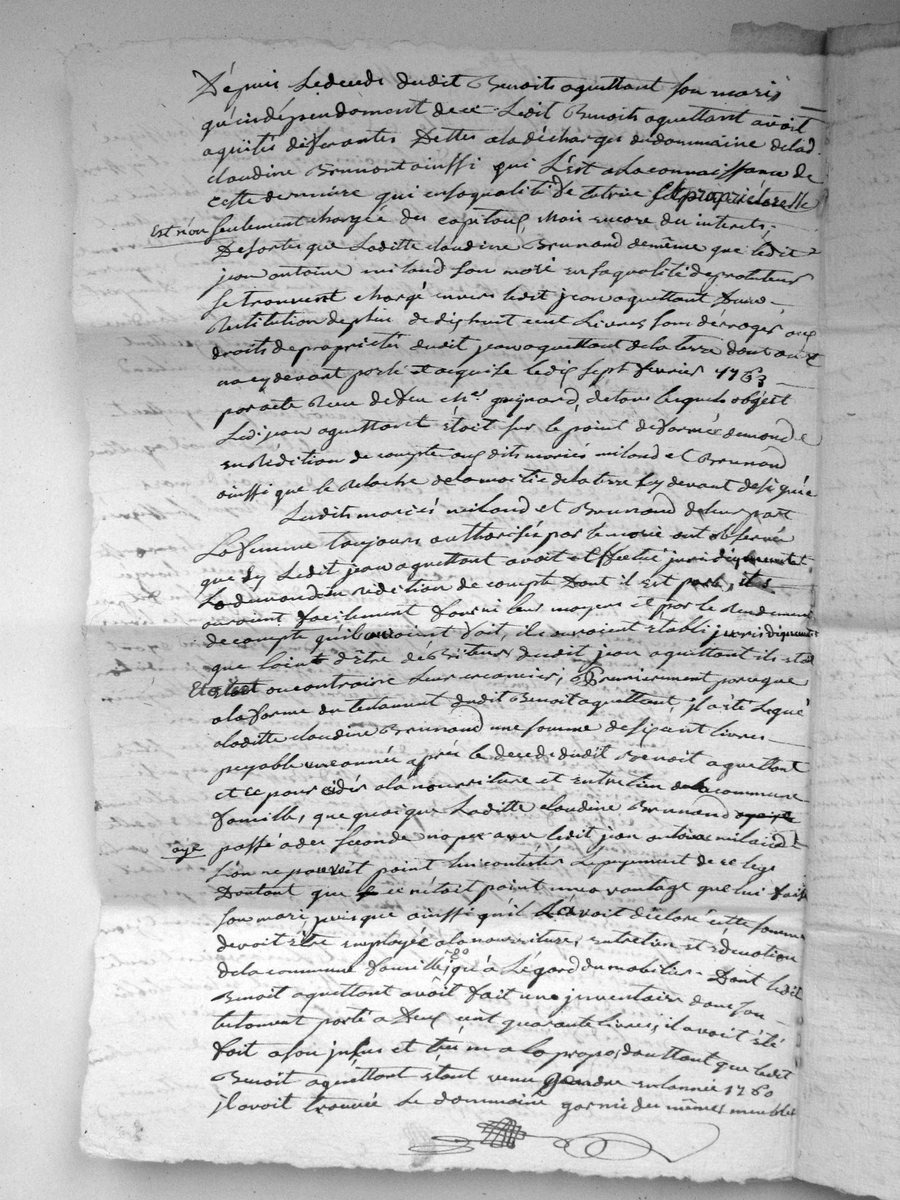 Dépuis Ledeceds dudit Benoit aquettant Son maris
qu'indépendament de ce Ledit Benoits aquettant avoit
aquités diferantes Dettes ala décharge du dommaine de lad.
claudine Brunont ainssi qui L'est a la connaissance de
cette derniere qui ensaqualité de tutrice
Est non seulement chargée des capitaux, mais encore du interets,
De sortes que Laditte claudine Brunand de meme que ledit
jean antoine milaud Son mari en saqualité de protuteur
Se trouvent chargé envers ledit jean aquettant
Restitution de plus de dix huit cent Livres sans dérroger aux
droits de proprietés dudit jean aquettant de la terre dont
cy devant parlé et acquise le dix Sept fevrier 1763
par acte Recu de feu guignard, de tous lequels objest
Ledi jean aquettant étoit sur le point de formée demende
en Rédition de compte aux dits mariés milaud et Brunand
ainssi que le Relache de la moitie de la terre cy devant
Lesdits mariés milaud et Brunand de leur part
La femme toujours authorisés par le marie ont observée
que Sy Ledit jean aquettant avoit effectué juridiquement
La demande en rédition de compte Dont il est parlé, ils
auroient facilement fourni leur moyens et par le Rendement
de compte qu'ils auroient fait, ils auroient établi jurridiquement
que loint d'être débiteurs dudit jean aquettant ils
Etoient au contraire Leur creancier, Premierement parceque
ala forme du testament dudit Benoit aquettant, il a été Legué
aladitte claudine Brunand une somme de six cent livres
payable une année aprés le decede dudit Benoit aquettant
et ce pour aider ala nourriture et entretien de la commune
famille, que quoique Laditte claudine Brunand
aÿe passé a des Seconde nopce avec ledit jean antoine milaud
L'on ne pouvoit point lui contester Le payement de ce legs
Dautant que ce n'étoit point un avantage que lui fait
Son mari, puisque ainssi qu'il L'avoit déclaré cette somme
devoit être employée ala nourriture, entretien et éducation
de la commune famille, qu'a L'égard du mobilier Dont ledit
Benoit aquettant avoit fait une inventaire dans son
testament porté a Deux cent quarante livres, il avoit été
fait a son insus et très mal a propos dauttant que ledit
Benoit aquéttant étant venu gendre en lannée 1760
il avoit trouvée Le dommaine garnie des mêmes meubles